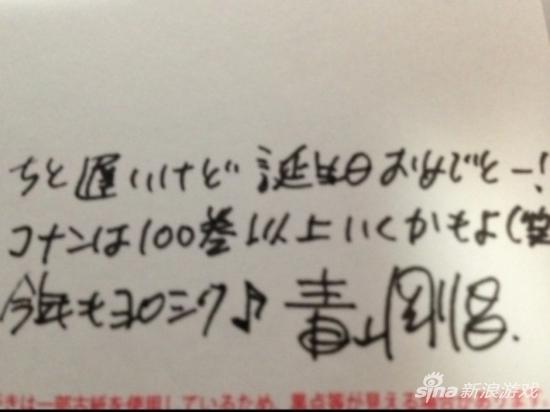 ちと遅いけど誕生日おめでとー!
コナンは100巻以上いくかもよ(笑
今年もヨロシク♪ 青山剛昌
きは一部古紙を使用しているため、黒点等が見え
sina 新浪游戏